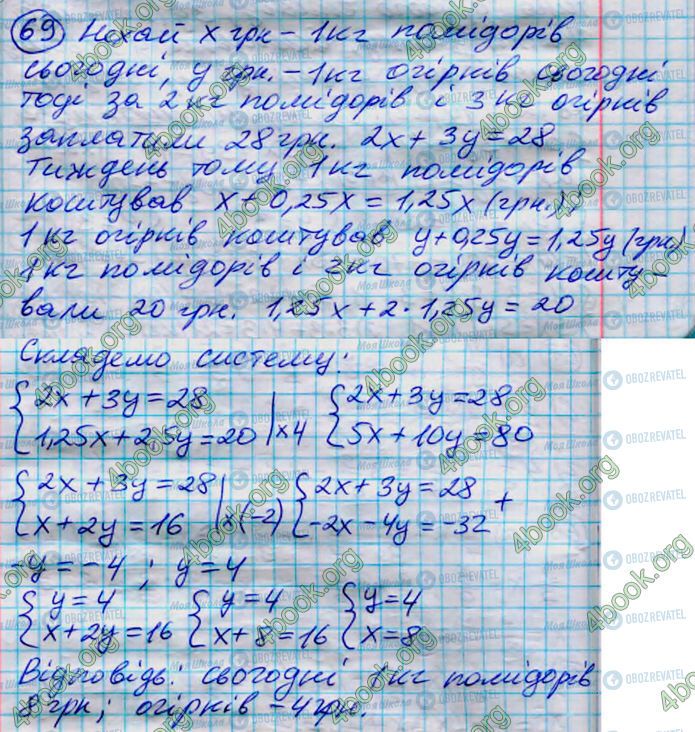 69 Нехай x грн - 1 кг помідорів
сьогодні, y грн. - 1 кг огірків сьогодні
тоді за 2 кг помідорів і 3 кг огірків
заплатили 28 грн. 2x + 3y = 28
Тиждень тому 1 кг помідорів
коштував x + 0,25x = 1,25x (грн.),
1 кг огірків коштував y + 0,25y = 1,25y (грн)
1 кг помідорів і 2 кг огірків кошту-
вали 20 грн. 1,25x + 2 · 1,25y = 20
Складемо систему:
{ 2x + 3y = 28 { 2x + 3y = 28
1,25x + 2,5y = 20 | x4 5x + 10y = 80
{ 2x + 3y = 28 { 2x + 3y = 28 +
x + 2y = 16 | x(-2) -2x - 4y = -32
-y = -4 ; y = 4
{ y = 4 { y = 4 { y = 4
x + 2y = 16 x + 8 = 16 x = 8
Відповідь: сьогодні 1 кг помідорів
8 грн; огірків - 4 грн.
4book.org
Моя Школа
OBOZREVATEL